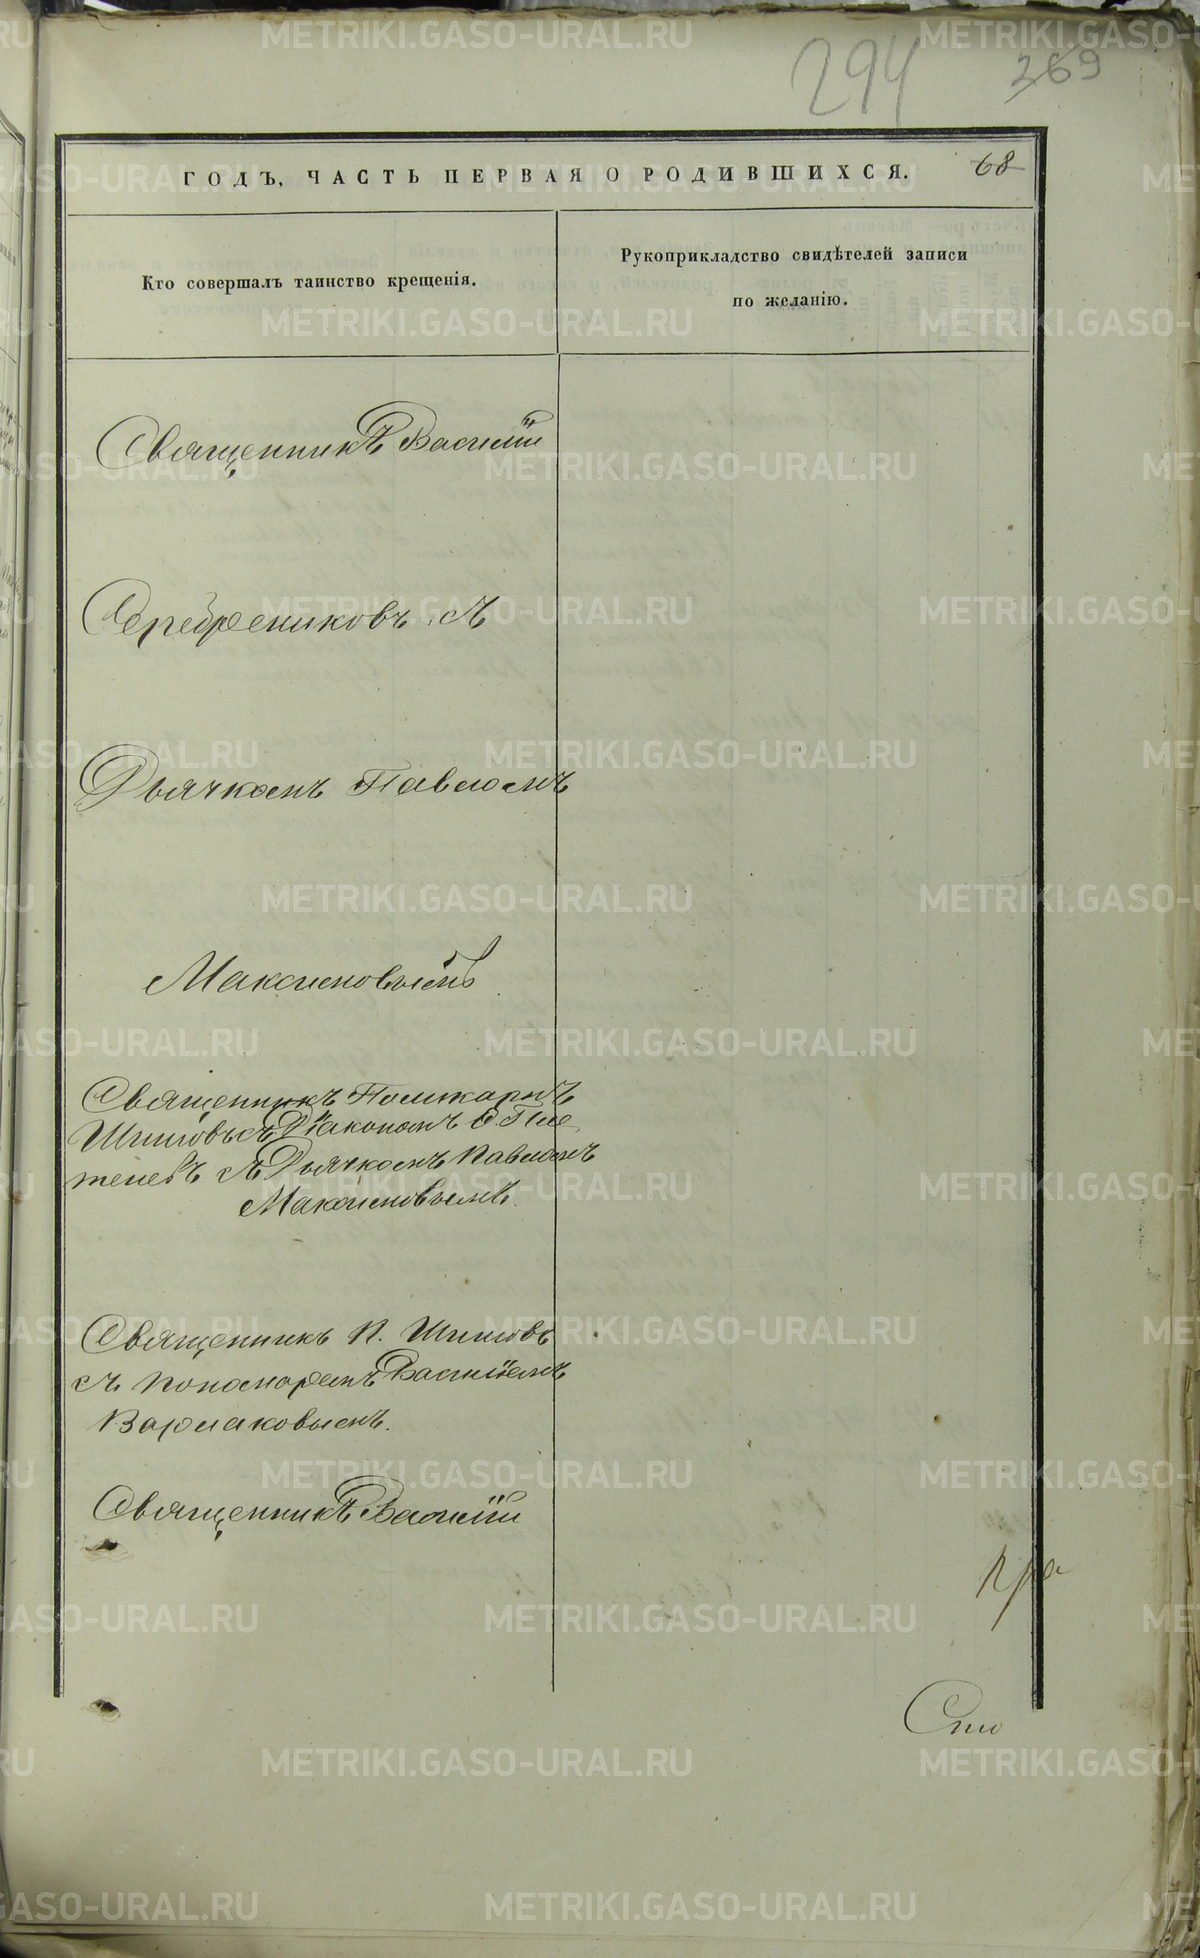 294
269
ГОДЪ, ЧАСТЬ ПЕРВАЯ О РОДИВШИХСЯ. 68
Кто совершалъ таинство крещенія.
Рукоприкладство свидѣтелей записи
по желанію.
Священникъ Василій
Серебрениковъ съ
Дьячкомъ Павломъ
Максимовымъ
Священникъ Поликарпъ
Шишовъ съ Діакономъ
съ Дьячкомъ Павломъ
Максимовымъ.
Священникъ П. Шишовъ
съ Пономаремъ Василіемъ
Варлаковымъ.
Священникъ Василій
METRIKI.GASO-URAL.RU